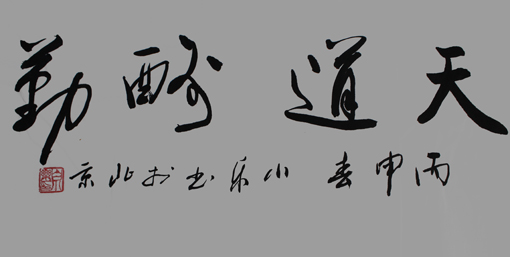 天道酬勤
丙申春小乐书于北京